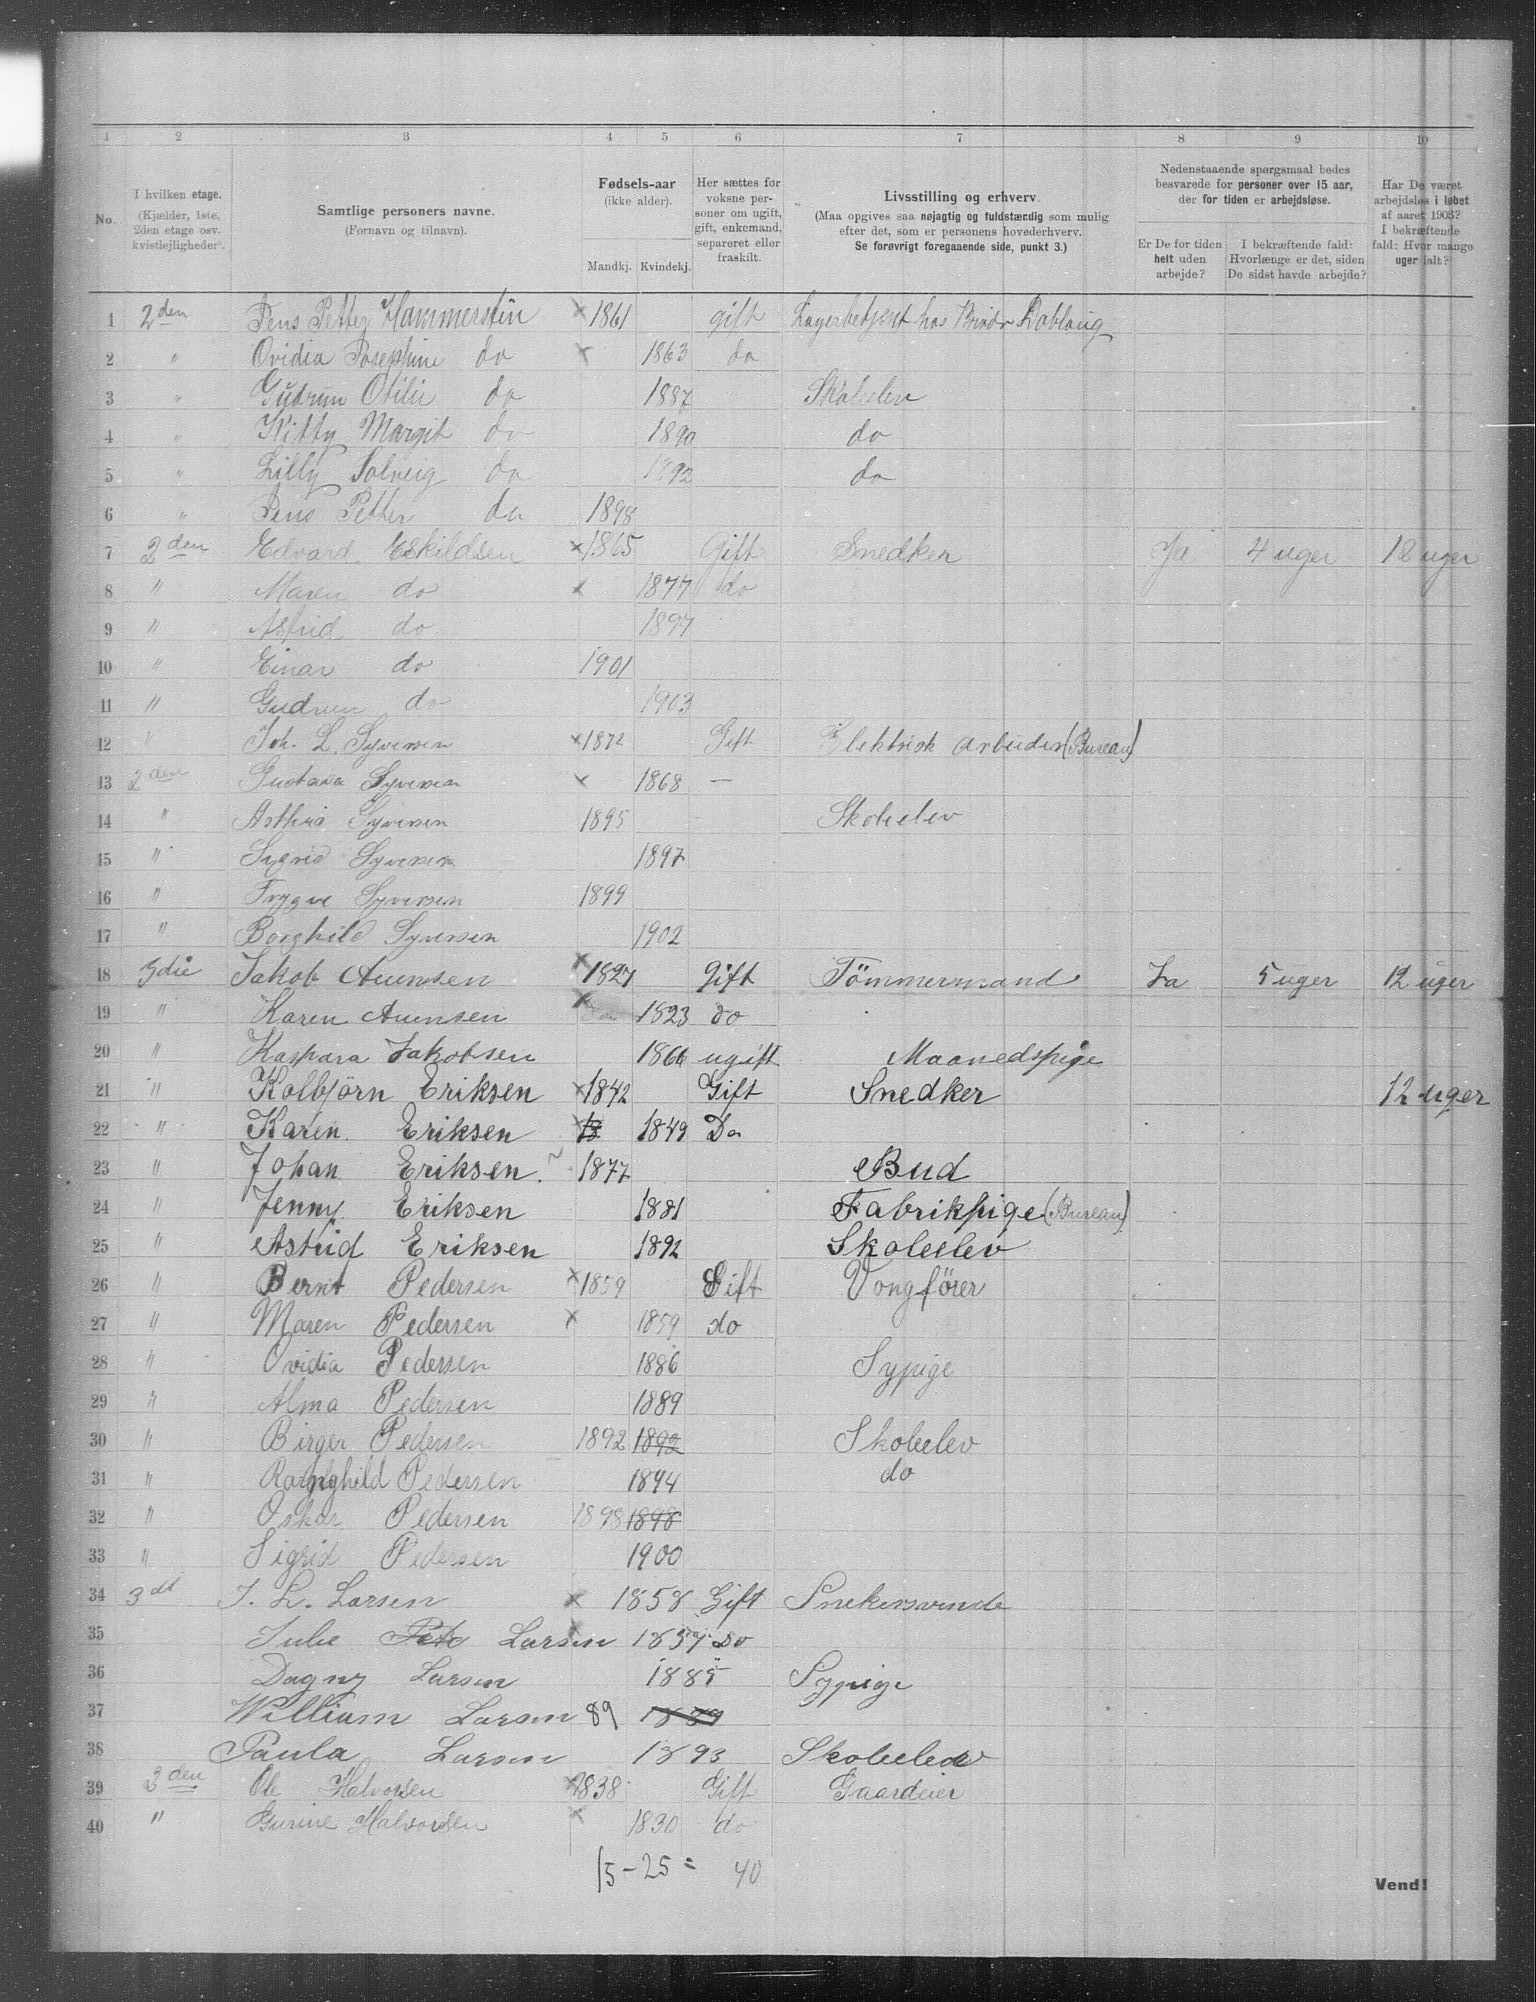 1 2 3 4 5 6 7 8 9 10
No. I hvilken etage. (Kjælder, 1ste, 2den etage osv. kvistlejligheder). Samtlige personers navne. (Fornavn og tilnavn). Fødsels-aar (ikke alder). Mandkj. Kvindekj. Her sættes for voksne personer om ugift, gift, enkemand, separeret eller fraskilt. Livsstilling og erhverv. (Maa opgives saa nøjagtig og fuldstændig som mulig efter det, som er personens hovederhverv. Se forøvrigt foregaaende side, punkt 3.) Nedenstaaende spørgsmaal bedes besvarede for personer over 15 aar, der for tiden er arbejdsløse. Er De for tiden helt uden arbejde? I bekræftende fald: Hvorlænge er det, siden De sidst havde arbejde? Har De været arbejdsløs i løbet af aaret 1903? I bekræftende fald: Hvor mange uger ialt?
1 2den Jens Petter Hammerstin × 1861 gift Lagerbetjent hos Brødr Dobloug
2 " Ovidia Josephine do × 1863 do
3 " Gudrun Otilie do 1887 Skoleelev
4 " Kitty Margit do 1890 do
5 " Lilly Solveig do 1892 do
6 " Jens Petter do 1898
7 2den Edvard Eskildsen × 1865 Gift Snedker Ja 4 uger 12 uger
8 " Maren do × 1877 do
9 " Astrid do 1897
10 " Einar do 1901
11 " Gudrun do 1903
12 " Joh. L. Syversen × 1872 Gift Elektrisk arbeider (Bureau)
13 2den Gustava Syversen × 1868 —
14 " Arthur Syversen 1895 Skoleelev
15 " Sigrid Syversen 1897
16 " Trygve Syversen 1899
17 " Borghild Syversen 1902
18 3die Jakob Auensen × 1827 Gift Tömmermand Ja 5 uger 12 uger
19 " Karen Auensen × 1823 do
20 " Kaspara Jakobsen 1866 ugift Maanedspige
21 " Kolbjörn Eriksen × 1842 Gift Snedker 12 uger
22 " Karen Eriksen × 18 1849 Do
23 " Johan Eriksen. 1877 Bud
24 " Jenny Eriksen 1881 Fabrikpige (Bureau)
25 " Astrid Eriksen 1892 Skoleelev
26 " Bernt Pedersen × 1859 Gift Vongförer
27 " Maren Pedersen × 1859 do
28 " Ovidia Pedersen 1886 Sypige
29 " Alma Pedersen 1889
30 " Birger Pedersen 1892 1892 Skoleelev
31 " Rangghild Pedersen 1894 do
32 " Oskar Pedersen 1898 1898
33 " Sigrid Pedersen 1900
34 3dt J. L. Larsen × 1858 Gift Snekersvende
35 Julie Larsen × 1857 Do
36 Dagny Larsen 1885 Sypige
37 William Larsen 89 1889
38 Paula Larsen 1893 Skoleelev
39 2den Ole Halvorsen × 1838 Gift Gaardeier
40 " Gurine Halvorsen × 1830 do
15 - 25 = 40
Vend!